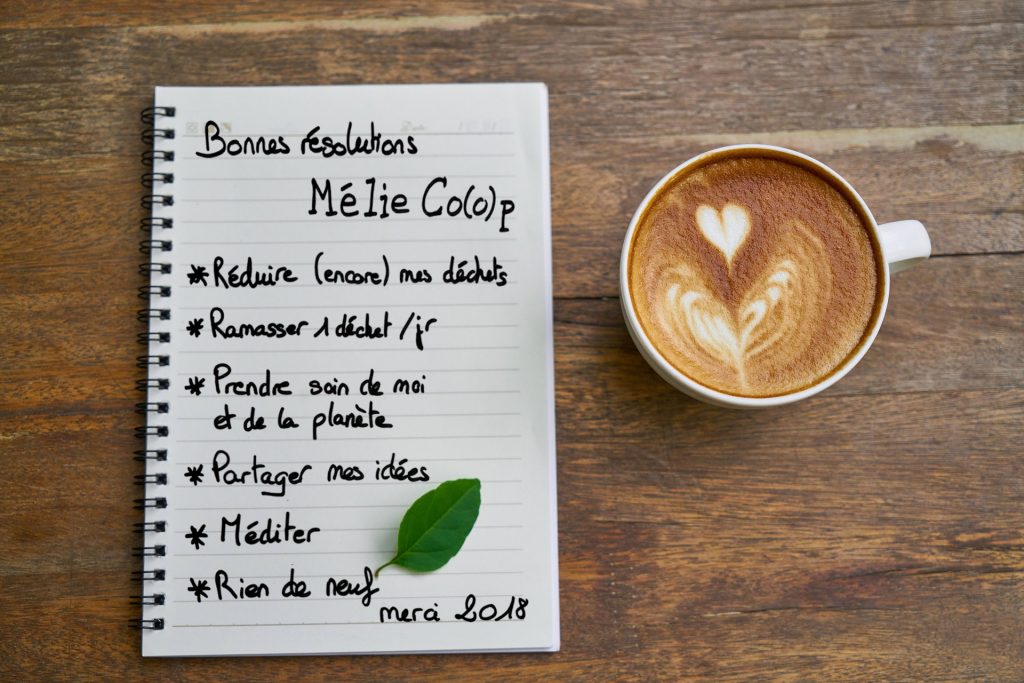 Bonnes résolutions
Mélie Co(o)p
* Réduire (encore) mes déchets
* Ramasser 1 déchet /jr
* Prendre soin de moi
et de la planète
* Partager mes idées
* Méditer
* Rien de neuf
merci 2018